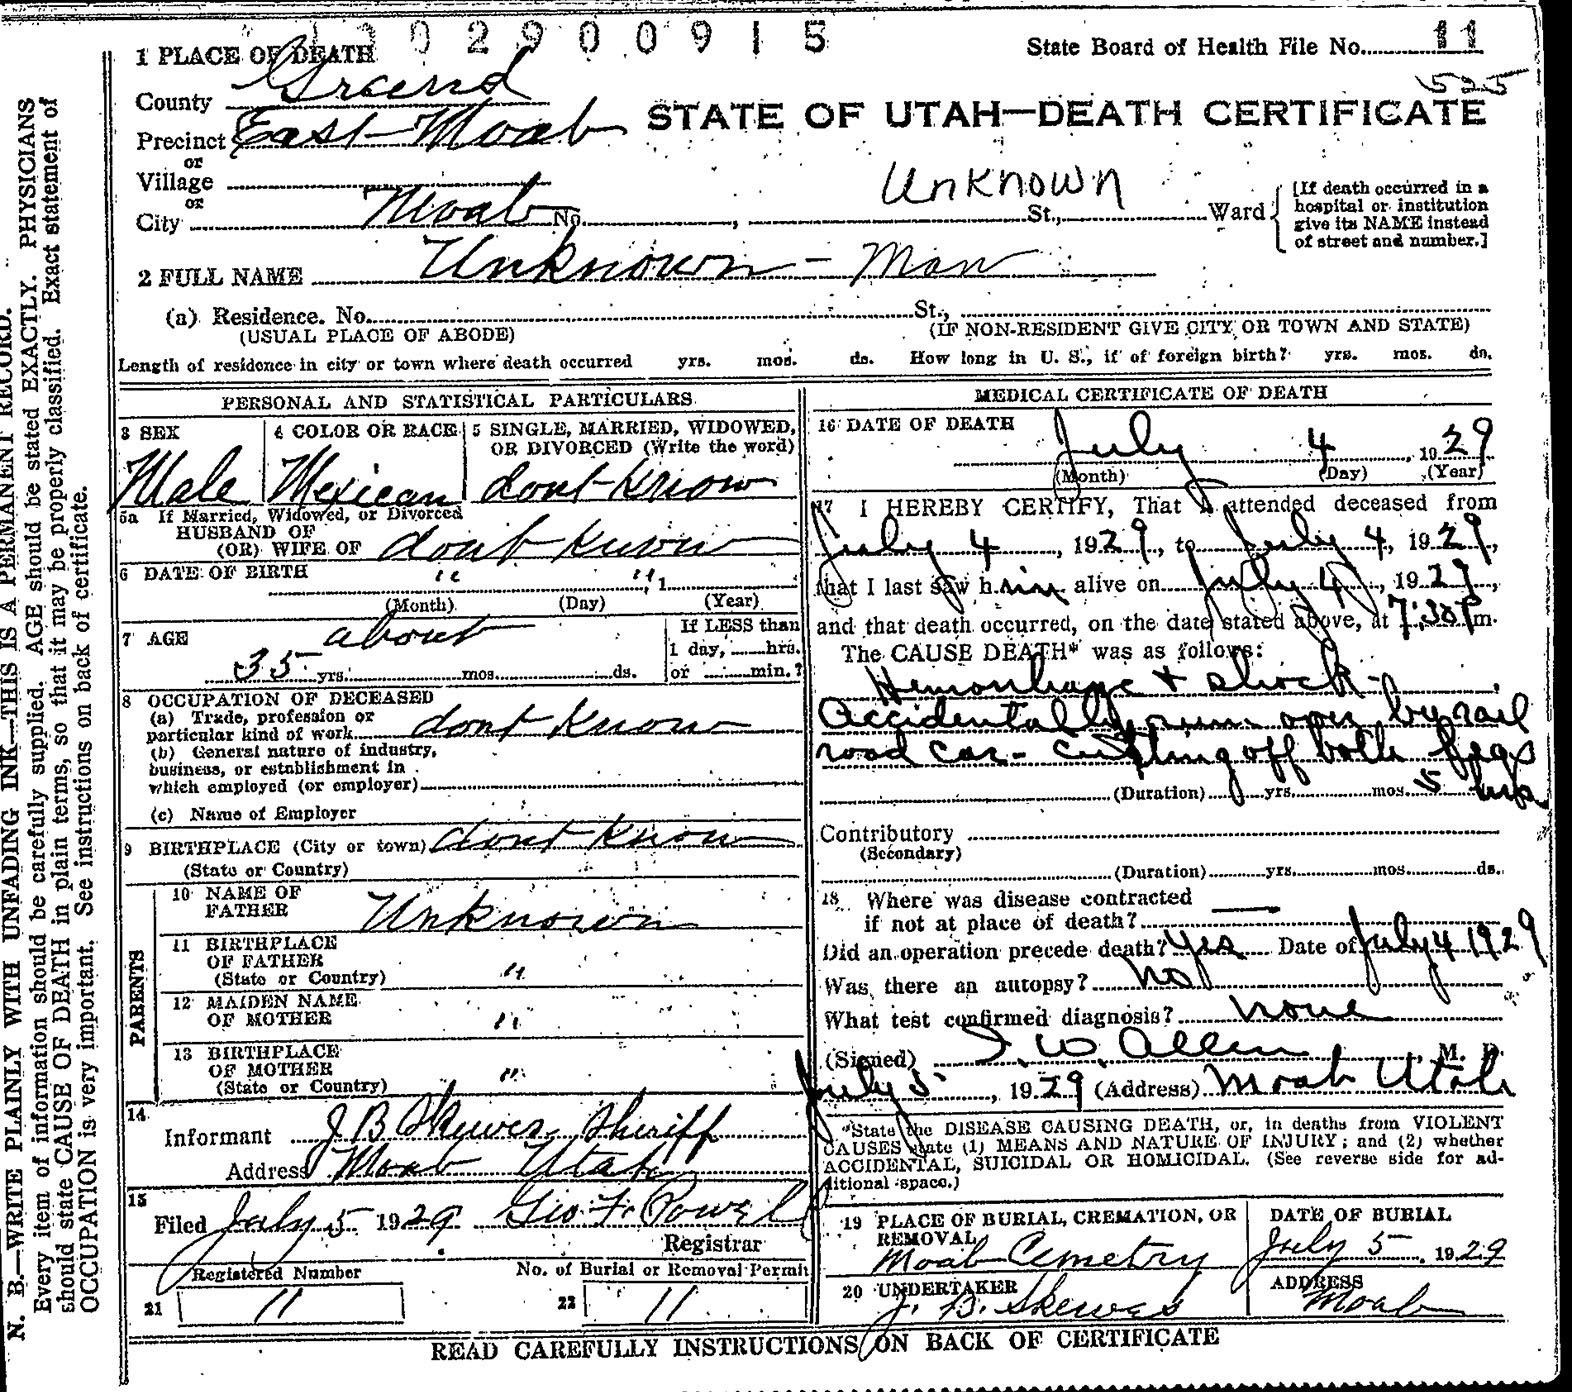 1302900915
State Board of Health File No. 11
525
1 PLACE OF DEATH
County Grand
STATE OF UTAH—DEATH CERTIFICATE
Precinct East Moab
or
Village
or
City Moab No. , St., Ward
Unknown
[If death occurred in a
hospital or institution
give its NAME instead
of street and number.]
2 FULL NAME Unknown - Man
(a) Residence. No. St.,
(USUAL PLACE OF ABODE) (IF NON-RESIDENT GIVE CITY OR TOWN AND STATE)
Length of residence in city or town where death occurred yrs. mos. ds. How long in U. S., if of foreign birth? yrs. mos. ds.
PERSONAL AND STATISTICAL PARTICULARS
3 SEX 4 COLOR OR RACE 5 SINGLE, MARRIED, WIDOWED,
OR DIVORCED (Write the word)
Male Mexican dont know
5a If Married, Widowed, or Divorced
HUSBAND OF
(OR) WIFE OF dont know
6 DATE OF BIRTH " " , 1
(Month) (Day) (Year)
7 AGE about If LESS than
1 day, hrs.
35 yrs. mos. ds. or min.?
8 OCCUPATION OF DECEASED
(a) Trade, profession or
particular kind of work dont know
(b) General nature of industry,
business, or establishment in
which employed (or employer)
(c) Name of Employer
9 BIRTHPLACE (City or town) dont know
(State or Country)
PARENTS
10 NAME OF
FATHER Unknown
11 BIRTHPLACE
OF FATHER
(State or Country) "
12 MAIDEN NAME
OF MOTHER "
13 BIRTHPLACE
OF MOTHER
(State or Country) "
14
Informant J B Skewes Sheriff
Address Moab Utah
15
Filed July 5 1929 Geo F. Powel
Registrar
Registered Number No. of Burial or Removal Permit
21 11 22 11
MEDICAL CERTIFICATE OF DEATH
16 DATE OF DEATH
July 4, 1929
(Month) (Day) (Year)
17 I HEREBY CERTIFY, That I attended deceased from
July 4, 1929, to July 4, 1929,
that I last saw him alive on July 4, 1929,
and that death occurred, on the date stated above, at 7:30 P m.
The CAUSE DEATH* was as follows:
Hemorrhage + shock -
Accidentally run over by rail
road car - cutting off both legs
(Duration) yrs. mos. 5 hrs
Contributory
(Secondary)
(Duration) yrs. mos. ds.
18 Where was disease contracted
if not at place of death? —
Did an operation precede death? Yes Date of July 4 1929
Was there an autopsy? No
What test confirmed diagnosis? none
(Signed) I. W. Allen, M. D.
July 5, 1929 (Address) Moab Utah
*State the DISEASE CAUSING DEATH, or, in deaths from VIOLENT
CAUSES state (1) MEANS AND NATURE OF INJURY; and (2) whether
ACCIDENTAL, SUICIDAL OR HOMICIDAL. (See reverse side for ad-
ditional space.)
19 PLACE OF BURIAL, CREMATION, OR
REMOVAL
Moab Cemetry
DATE OF BURIAL
July 5, 1929
20 UNDERTAKER
J. B. Skewes
ADDRESS
Moab
READ CAREFULLY INSTRUCTIONS ON BACK OF CERTIFICATE
N. B.—WRITE PLAINLY WITH UNFADING INK—THIS IS A PERMANENT RECORD.
Every item of information should be carefully supplied. AGE should be stated EXACTLY. PHYSICIANS
should state CAUSE OF DEATH in plain terms, so that it may be properly classified. Exact statement of
OCCUPATION is very important. See instructions on back of certificate.